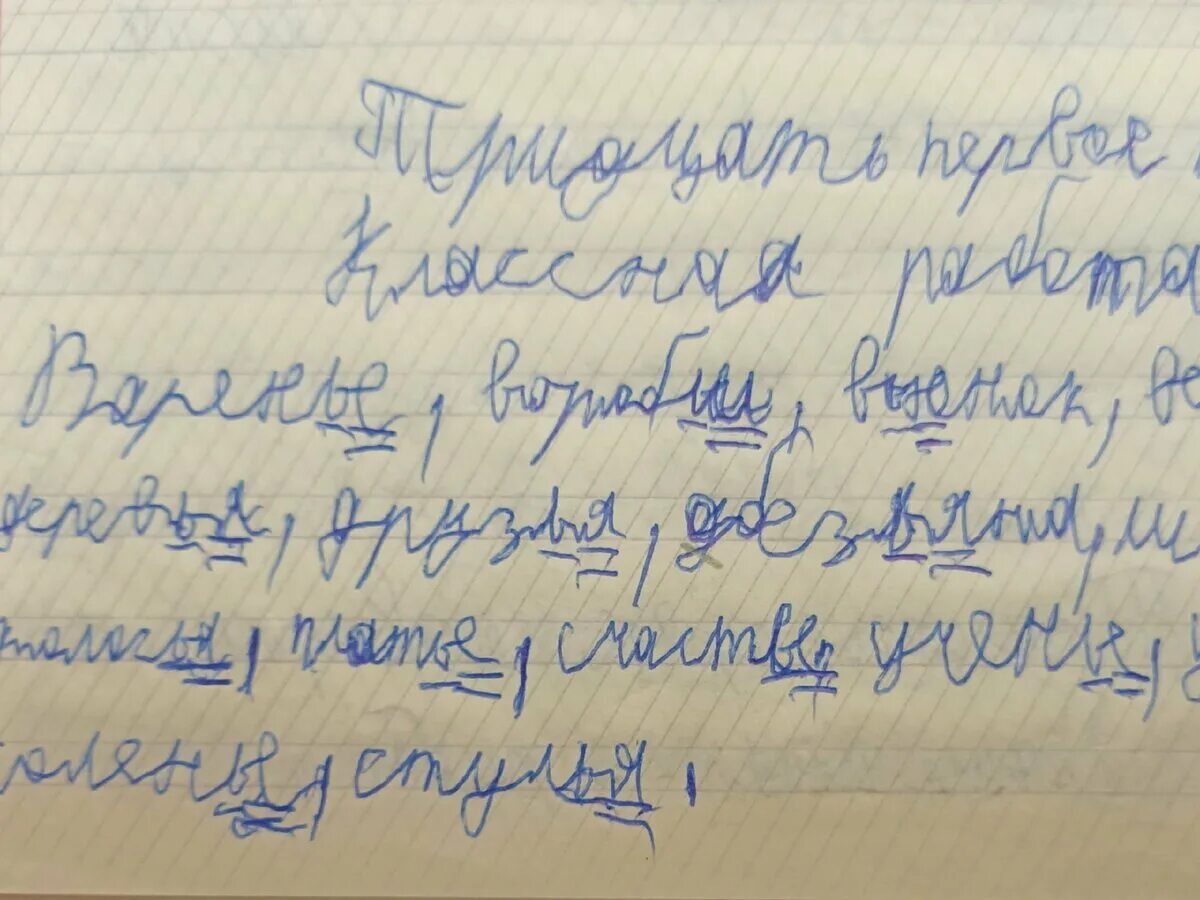 Тридцать первое
Классная работа
Варенье, воробьи, вьюнок, ве
деревья, друзья, обезьяна, ш
колосья, платье, счастье, ученье, у
оленьи, стулья,